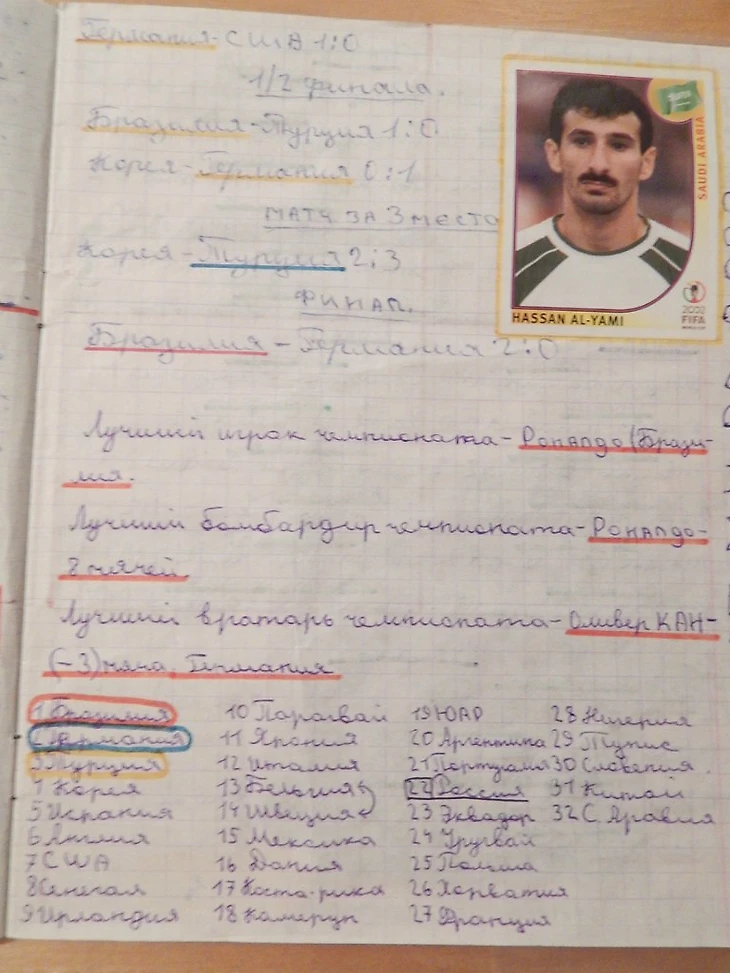 Германия-США 1:0
1/2 финала.
Бразилия-Турция 1:0
Корея-Германия 0:1
матч за 3 место
Корея-Турция 2:3
финал.
Бразилия-Германия 2:0
SAUDI ARABIA
HASSAN AL-YAMI
2002
FIFA
WORLD CUP
Лучший игрок чемпионата-Роналдо(Брази-
лия.
Лучший бомбардир чемпионата-Роналдо-
8 мячей.
Лучший вратарь чемпионата-Оливер КАН-
(-3)мяча, Германия
1 Бразилия 10 Парагвай 19 ЮАР 28 Нигерия
2 Германия 11 Япония 20 Аргентина 29 Тунис
3 Турция 12 Италия 21 Португалия 30 Словения.
Корея 13 Бельгия 22 Россия 31 Китай
5 Испания 14 Швеция 23 Эквадор 32 С. Аравия
6 Англия 15 Мексика 24 Уругвай
7 США 16 Дания 25 Польша
8 Сенегал 17 Коста-рика 26 Хорватия
9 Ирландия 18 Камерун 27 Франция